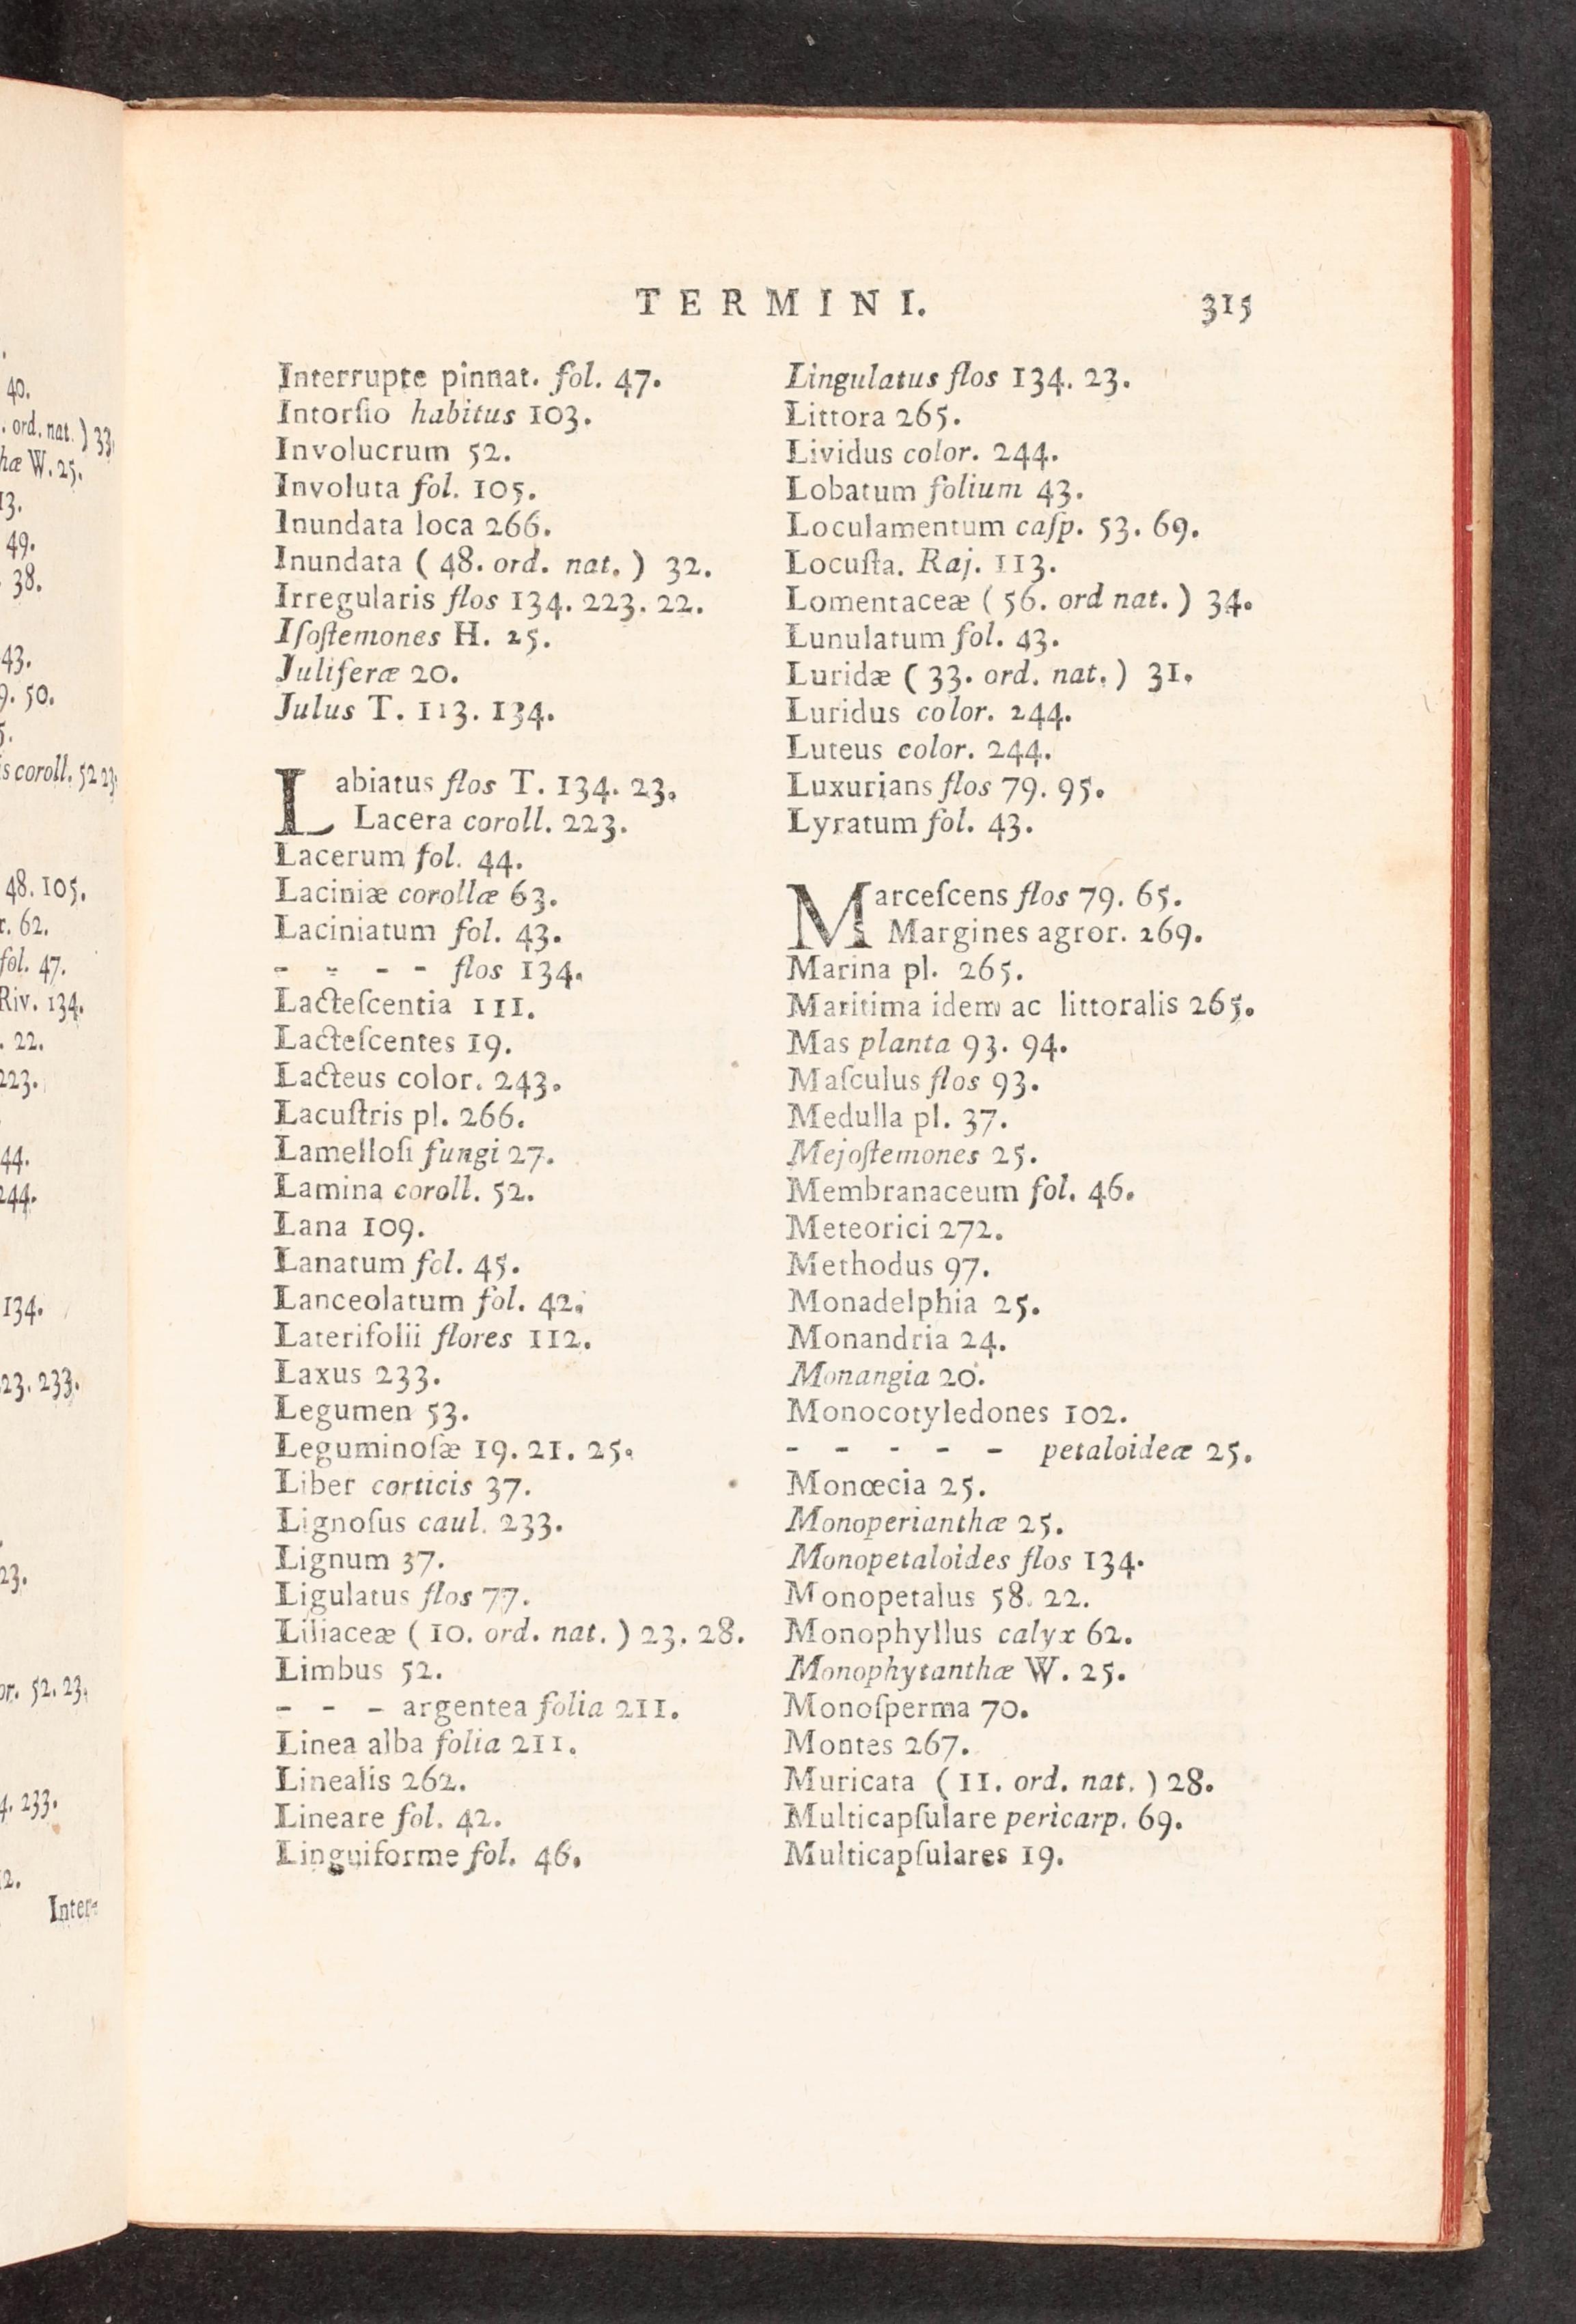 40.
. ord. nat. ) 33.
hæ W. 25.
13.
49.
38.
43.
9. 50.
5.
is coroll. 52 23.
48. 105.
r. 62.
fol. 47.
Riv. 134.
. 22.
223.
44.
244.
134.
23. 233.
23.
or. 52. 23.
4. 233.
12.
Inter-
TERMINI. 315
Interrupte pinnat. fol. 47.
Intorſio habitus 103.
Involucrum 52.
Involuta fol. 105.
Inundata loca 266.
Inundata ( 48. ord. nat. ) 32.
Irregularis flos 134. 223. 22.
Iſoſtemones H. 25.
Juliferæ 20.
Julus T. 113. 134.
Labiatus flos T. 134. 23.
Lacera coroll. 223.
Lacerum fol. 44.
Laciniæ corollæ 63.
Laciniatum fol. 43.
- - - - flos 134.
Lacteſcentia 111.
Lacteſcentes 19.
Lacteus color. 243.
Lacuſtris pl. 266.
Lamelloſi fungi 27.
Lamina coroll. 52.
Lana 109.
Lanatum fol. 45.
Lanceolatum fol. 42.
Laterifolii flores 112.
Laxus 233.
Legumen 53.
Leguminoſæ 19. 21. 25.
Liber corticis 37.
Lignoſus caul. 233.
Lignum 37.
Ligulatus flos 77.
Liliaceæ ( 10. ord. nat. ) 23. 28.
Limbus 52.
- - - argentea folia 211.
Linea alba folia 211.
Linealis 262.
Lineare fol. 42.
Linguiforme fol. 46.
Lingulatus flos 134. 23.
Littora 265.
Lividus color. 244.
Lobatum folium 43.
Loculamentum caſp. 53. 69.
Locuſta. Raj. 113.
Lomentaceæ ( 56. ord nat. ) 34.
Lunulatum fol. 43.
Luridæ ( 33. ord. nat. ) 31.
Luridus color. 244.
Luteus color. 244.
Luxurians flos 79. 95.
Lyratum fol. 43.
Marceſcens flos 79. 65.
Margines agror. 269.
Marina pl. 265.
Maritima idem ac littoralis 265.
Mas planta 93. 94.
Maſculus flos 93.
Medulla pl. 37.
Mejoſtemones 25.
Membranaceum fol. 46.
Meteorici 272.
Methodus 97.
Monadelphia 25.
Monandria 24.
Monangia 20.
Monocotyledones 102.
- - - - - petaloideæ 25.
Monœcia 25.
Monoperianthæ 25.
Monopetaloides flos 134.
Monopetalus 58. 22.
Monophyllus calyx 62.
Monophytanthæ W. 25.
Monoſperma 70.
Montes 267.
Muricata ( 11. ord. nat. ) 28.
Multicapſulare pericarp. 69.
Multicapſulares 19.